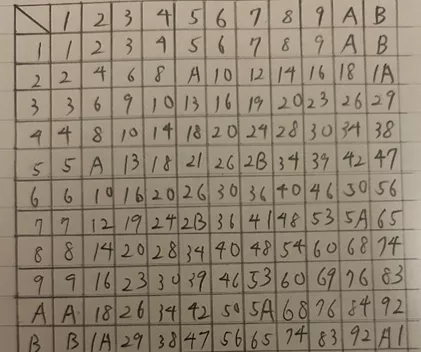 1 2 3 4 5 6 7 8 9 A B
1 1 2 3 4 5 6 7 8 9 A B
2 2 4 6 8 A 10 12 14 16 18 1A
3 3 6 9 10 13 16 19 20 23 26 29
4 4 8 10 14 18 20 24 28 30 34 38
5 5 A 13 18 21 26 2B 34 39 42 47
6 6 10 16 20 26 30 36 40 46 50 56
7 7 12 19 24 2B 36 41 48 53 5A 65
8 8 14 20 28 34 40 48 54 60 68 74
9 9 16 23 30 39 46 53 60 69 76 83
A A 18 26 34 42 50 5A 68 76 84 92
B B 1A 29 38 47 56 65 74 83 92 A1